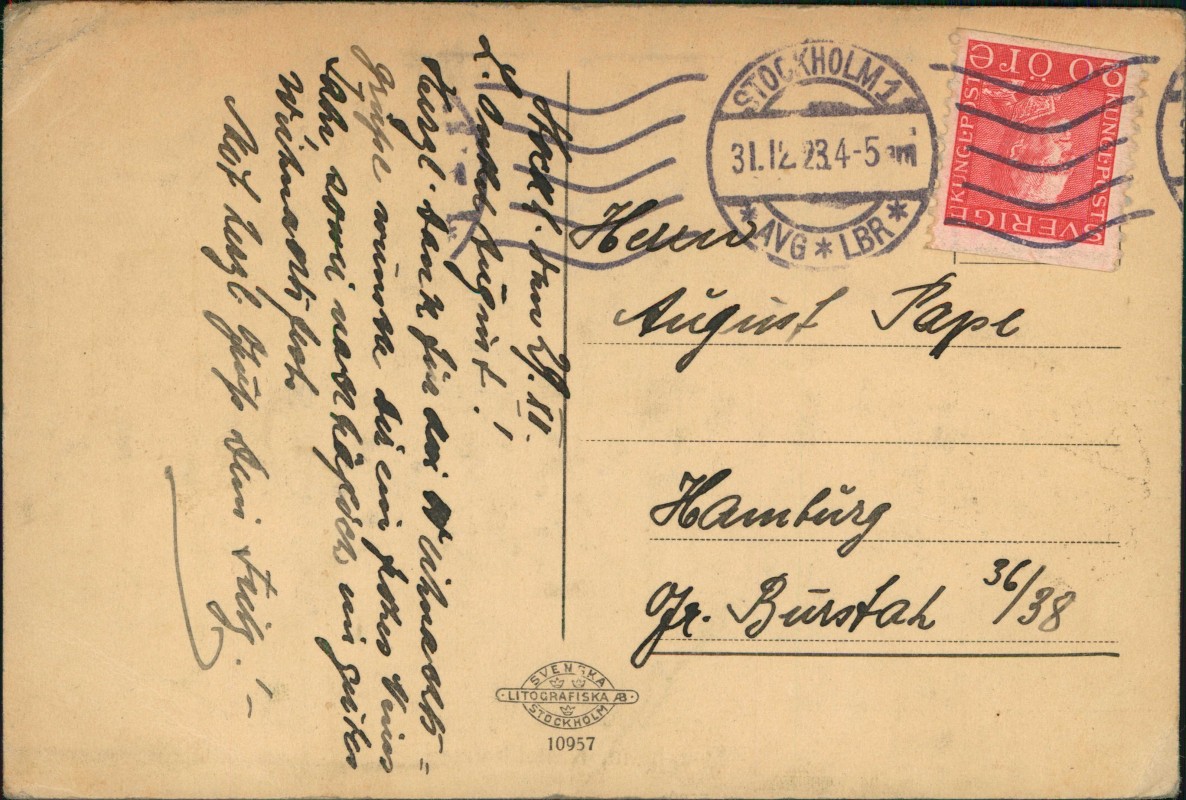 Stockh. den 29. XII.
L. Onkel August!
Herzl. Dank für die Weihnachts=
grüße wünsche dir ein frohes Neues
Jahr, sowie nachträglich ein gutes
Weihnachtsfest
Mit herzl Gruß Dein
STOCKHOLM 1
31.12.23.4-5 em
* AVG * LBR *
20 ÖRE
KUNGL. POST
SVERIGE
Herrn
August Pape
Hamburg
Gr. Burstah 36/38
SVENSKA
LITOGRAFISKA AB
STOCKHOLM
10957